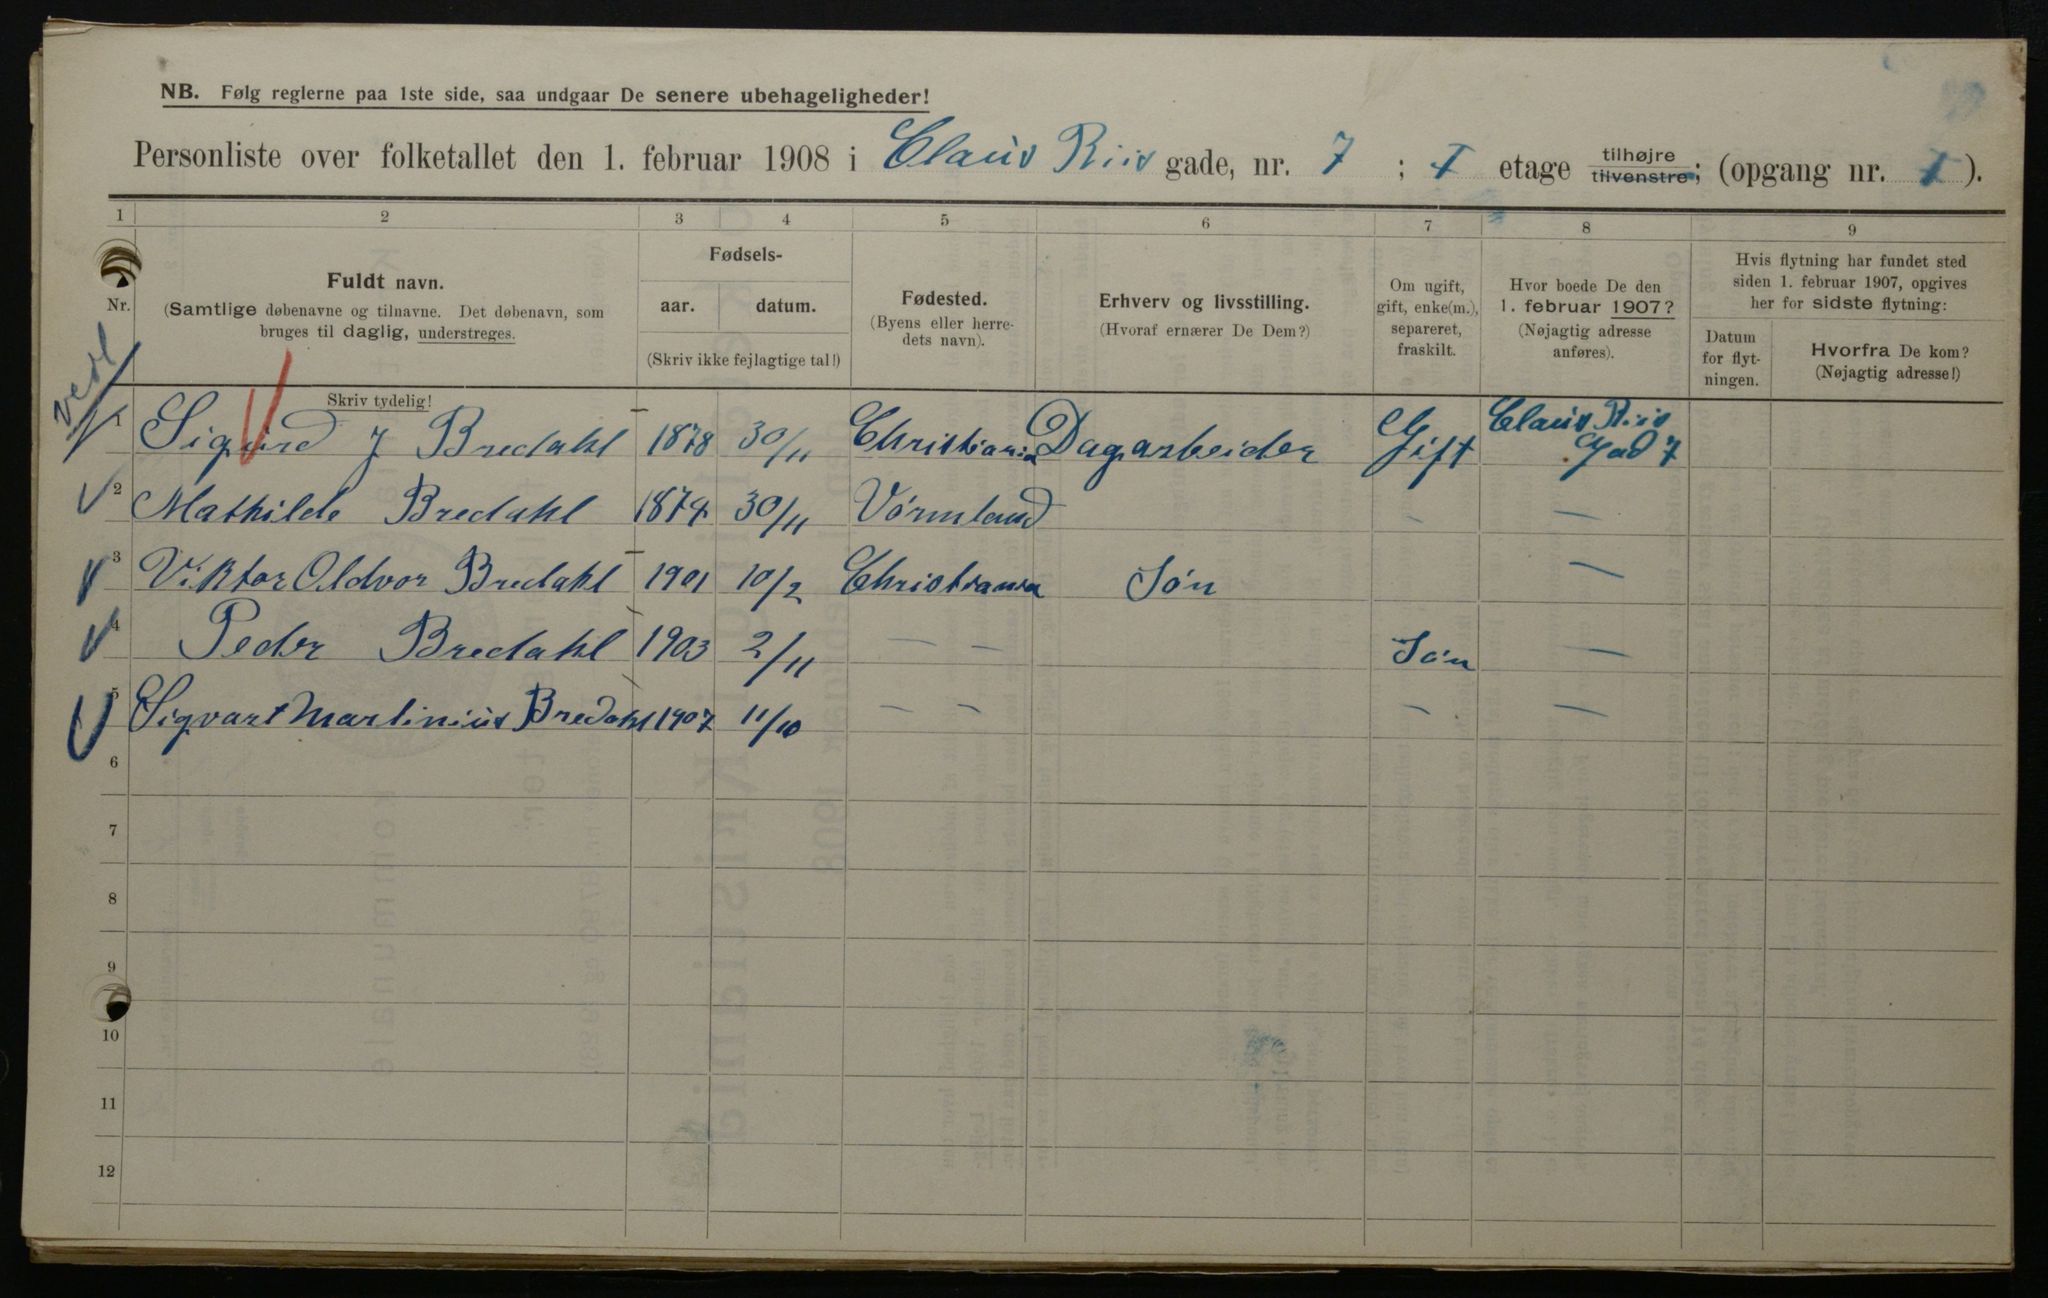 NB. Følg reglerne paa 1ste side, saa undgaar De senere ubehageligheder!
Personliste over folketallet den 1. februar 1908 i Claus Riis gade, nr. 7 ; I etage tilhøjre tilvenstre; (opgang nr. I ).
1 2 3 4 5 6 7 8 9
Nr.
Fuldt navn.
(Samtlige døbenavne og tilnavne. Det døbenavn, som
bruges til daglig, understreges.
Skriv tydelig!
Fødsels-
aar. datum.
(Skriv ikke fejlagtige tal!)
Fødested.
(Byens eller herre-
dets navn).
Erhverv og livsstilling.
(Hvoraf ernærer De Dem?)
Om ugift,
gift, enke(m.),
separeret,
fraskilt.
Hvor boede De den
1. februar 1907?
(Nøjagtig adresse
anføres).
Hvis flytning har fundet sted
siden 1. februar 1907, opgives
her for sidste flytning:
Datum
for flyt-
ningen.
Hvorfra De kom?
(Nøjagtig adresse!)
1 Sigurd J Bredahl 1878 30/11 Christiania Dagarbeider Gift Claus Riis
Gad 7
2 Mathilde Bredahl 1874 30/11 Vørmland - —
3 Viktor Oldvor Bredahl 1901 10/2 Christiania Søn —
4 Peder Bredahl 1903 2/11 — — Søn —
5 Sigvart Martinius Bredahl 1907 11/10 — — - —
6
7
8
9
10
11
12